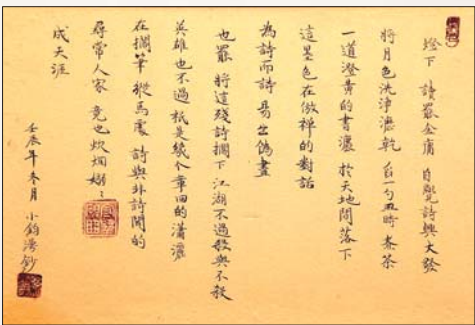 燈下 讀罷金庸 自覺詩興大發
將月色洗淨濾乾 自一勺丑時 煮茶
一道澄黃的書瀑 於天地間落下
這墨色在做禪的對話
為詩而詩 易出偽畫
也罷 將這殘詩擱下 江湖不過殺與不殺
英雄也不過 祇是幾个章回的瀟灑
在擱筆 縱馬處 詩與非詩間的
尋常人家 竟也炊烟嫋々
成天涯
壬辰年冬月 小鈞 鈔